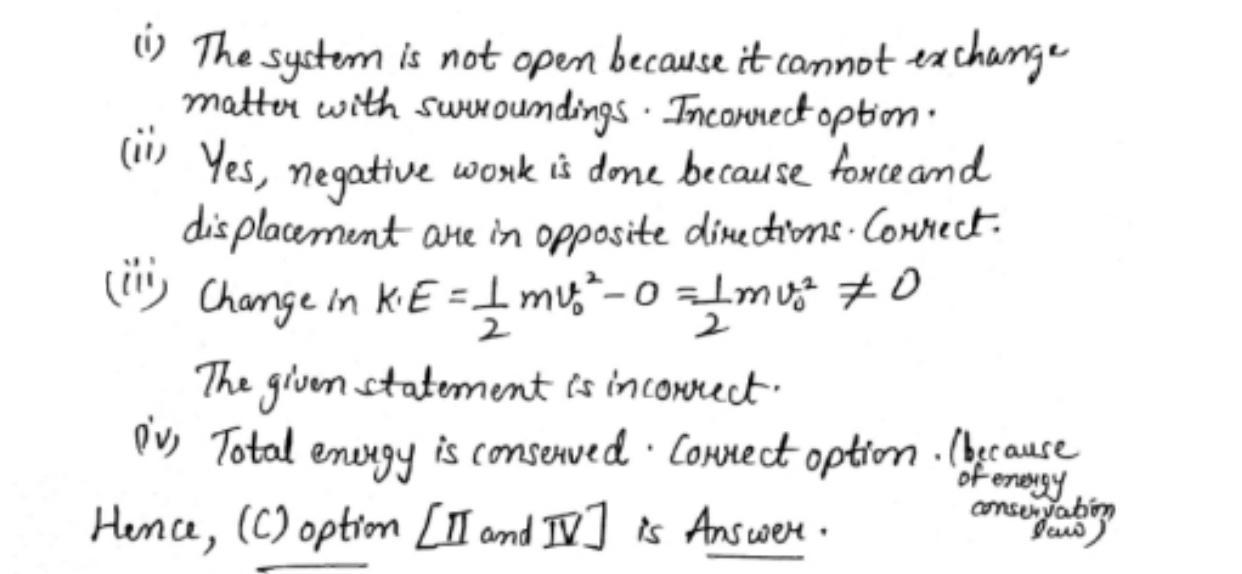 (i) The system is not open because it cannot exchange
matter with surroundings. Incorrect option.
(ii) Yes, negative work is done because force and
displacement are in opposite directions. Correct.
(iii) Change in K.E = 1/2 mv₀² - 0 = 1/2 mv₀² ≠ 0
The given statement is incorrect.
(iv) Total energy is conserved. Correct option. (because
of energy
conservation
law)
Hence, (C) option [II and IV] is Answer.